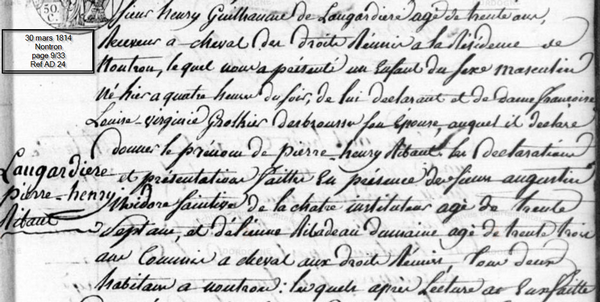 50
C.
30 mars 1814
Nontron
page 9/33
Ref AD 24
Sieur henry Guilhaume de Laugardiere agé de trente ans,
Receveur a cheval des droits Réunis a la Résidence de
Nontron, lequel nous a présenté un Enfant du sexe masculin
né hier a quatre heures du soir, de lui declarant et de dame francoise
Louise-virginie desbrousses son Epouse, auquel il declare
donner le prenom de pierre-henry Ribaut les declarations
et présentations faites En présence des sieurs augustin
isidore de la chatre instituteur agé de trente
Sept ans, et d'étienne Ribadeau dumaine agé de trente trois
ans Commis a cheval aux droits Réunis tous deux
habitans a nontron: lesquels après Lecture ont faitte
Laugardiere
pierre-henry
Ribaut